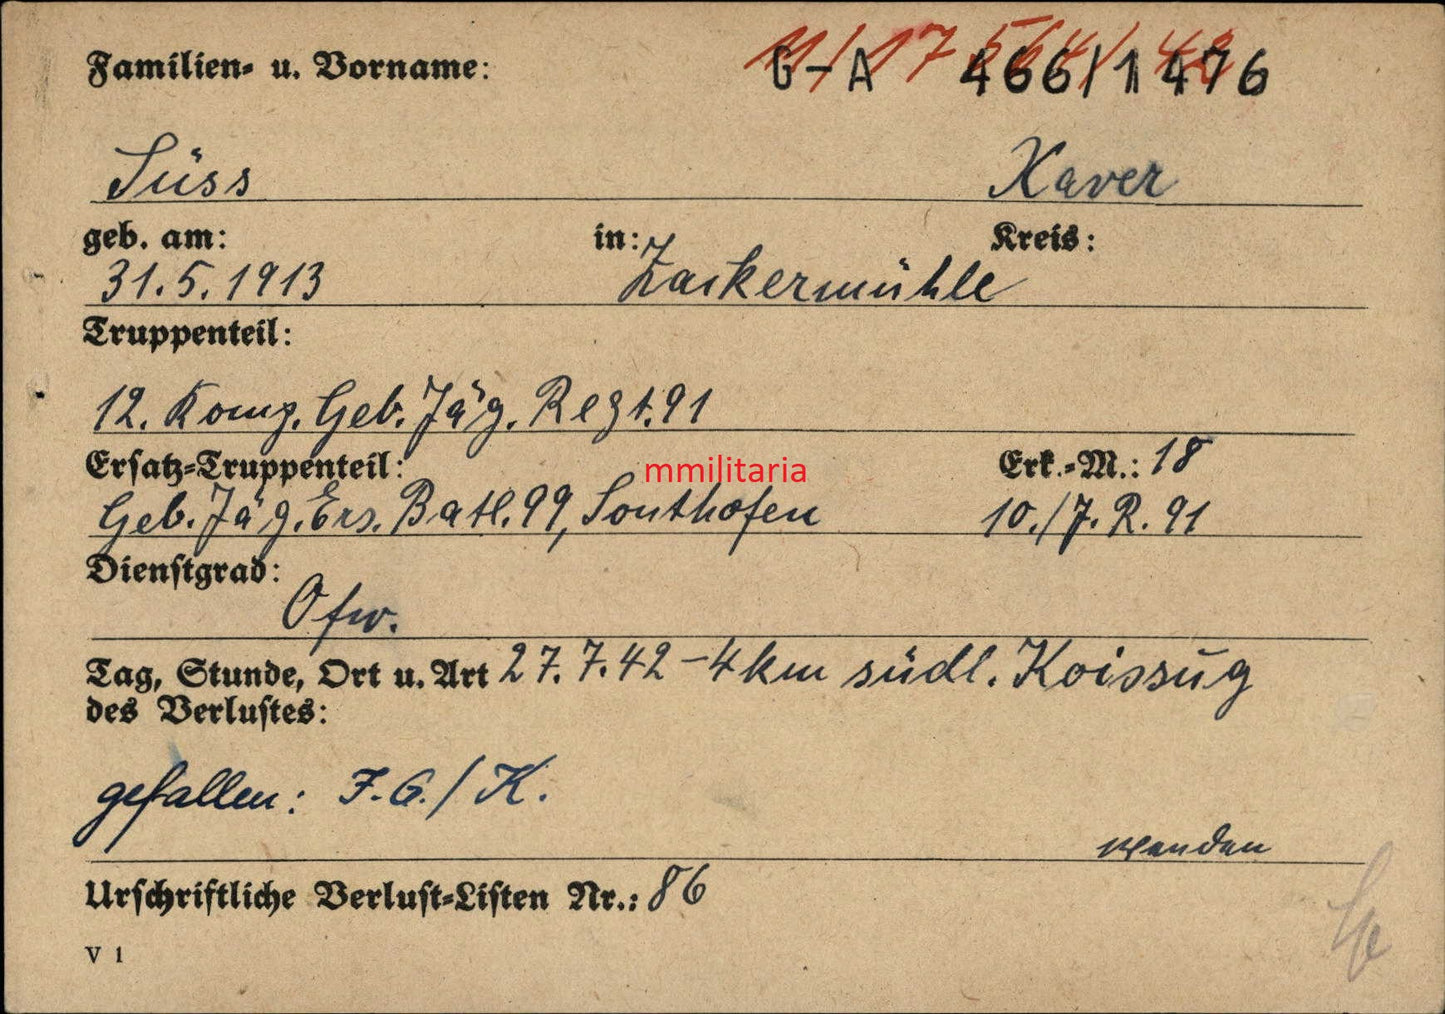 Familien- u. Vorname:
G-A 466/1476
11/17 564/42
Süss Xaver
geb. am: in: Kreis:
31.5.1913 Zackermühle
Truppenteil:
12. Komp. Geb. Jäg. Regt. 91
mmilitaria
Ersatz-Truppenteil: Erk.-M.: 18
Geb. Jäg. Ers. Batl. 99, Sonthofen 10./J. R. 91
Dienstgrad:
Ofw.
Tag, Stunde, Ort u. Art 27.7.42 - 4 km südl. Koissug
des Verlustes:
gefallen: I.G./K.
wenden
Urschriftliche Verlust-Listen Nr.: 86
V 1